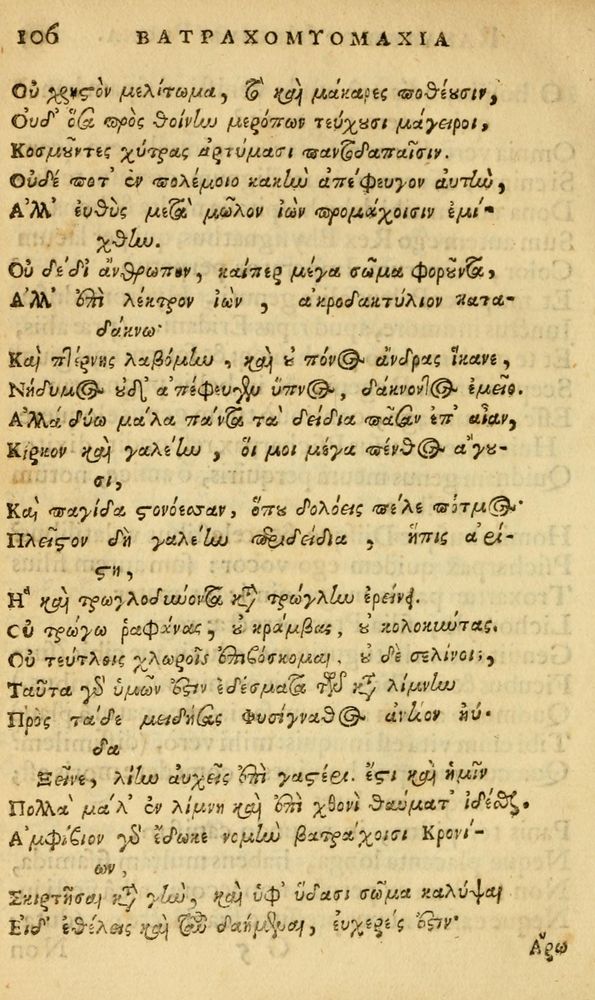 106 ΒΑΤΡΑΧΟΜΥΟΜΑΧΙΑ
Οὐ χρηστὸν μελίτωμα, τὸ καὶ μάκαρες ποθέουσιν,
Οὐδ' ὅσα πρὸς θοίνην μερόπων τεύχουσι μάγειροι,
Κοσμοῦντες χύτρας ἀρτύμασι παντοδαπαῖσιν.
Οὐδέ ποτ' ἐν πολέμοιο κακὴν ἀπέφευγον ἀυτὴν,
Ἀλλ' ἐυθὺς μετὰ μῶλον ἰὼν προμάχοισιν ἐμί-
χθην.
Οὐ δέδι' ἄνθρωπον, καίπερ μέγα σῶμα φοροῦντα,
Ἀλλ' ἐπὶ λέκτρον ἰὼν, ἀκροδακτύλιον κατα-
δάκνω·
Καὶ πτέρνης λαβόμην, καὶ οὐ πόνος ἄνδρας ἵκανε,
Νήδυμος οὐδ' ἀπέφευγεν ὕπνος, δάκνοντος ἐμεῖο.
Ἀλλὰ δύω μάλα πάντα τὰ δείδια πᾶσαν ἐπ' αἶαν,
Κίρκον καὶ γαλέην, ὅι μοι μέγα πένθος ἄγου-
σι,
Καὶ παγίδα στονόεσσαν, ὅπου δολόεις πέλε πότμος·
Πλεῖστον δὴ γαλέην περιδείδια, ἥτις ἀρί-
στη,
Ἣ καὶ τρωγλοδύνοντα κατὰ τρώγλην ἐρεείνει.
Οὐ τρώγω ῥαφάνας, οὐ κράμβας, οὐ κολοκύντας.
Οὐ τεύτλοις χλωροῖς ἐπιβόσκομαι, οὐδὲ σελίνοις,
Ταῦτα γὰρ ὑμῶν ἐστὶν ἐδέσματα τῶν κατὰ λίμνην
Πρὸς τάδε μειδήσας Φυσίγναθος ἀντίον ηὔ-
δα
Ξεῖνε, λίην αὐχεῖς ἐπὶ γαστέρι. ἔστι καὶ ἡμῖν
Πολλὰ μάλ' ἐν λίμνῃ καὶ ἐπὶ χθονὶ θαύματ' ἰδέσθαι.
Ἀμφίβιον γὰρ ἔδωκε νομὴν βατράχοισι Κρονί-
ων,
Σκιρτῆσαι κατὰ γῆν, καὶ ὑφ' ὕδασι σῶμα καλύψαι
Εἰδ' ἐθέλεις καὶ ταῦτα δαήμεναι, ἐυχερές ἐστιν·
Ἄρω